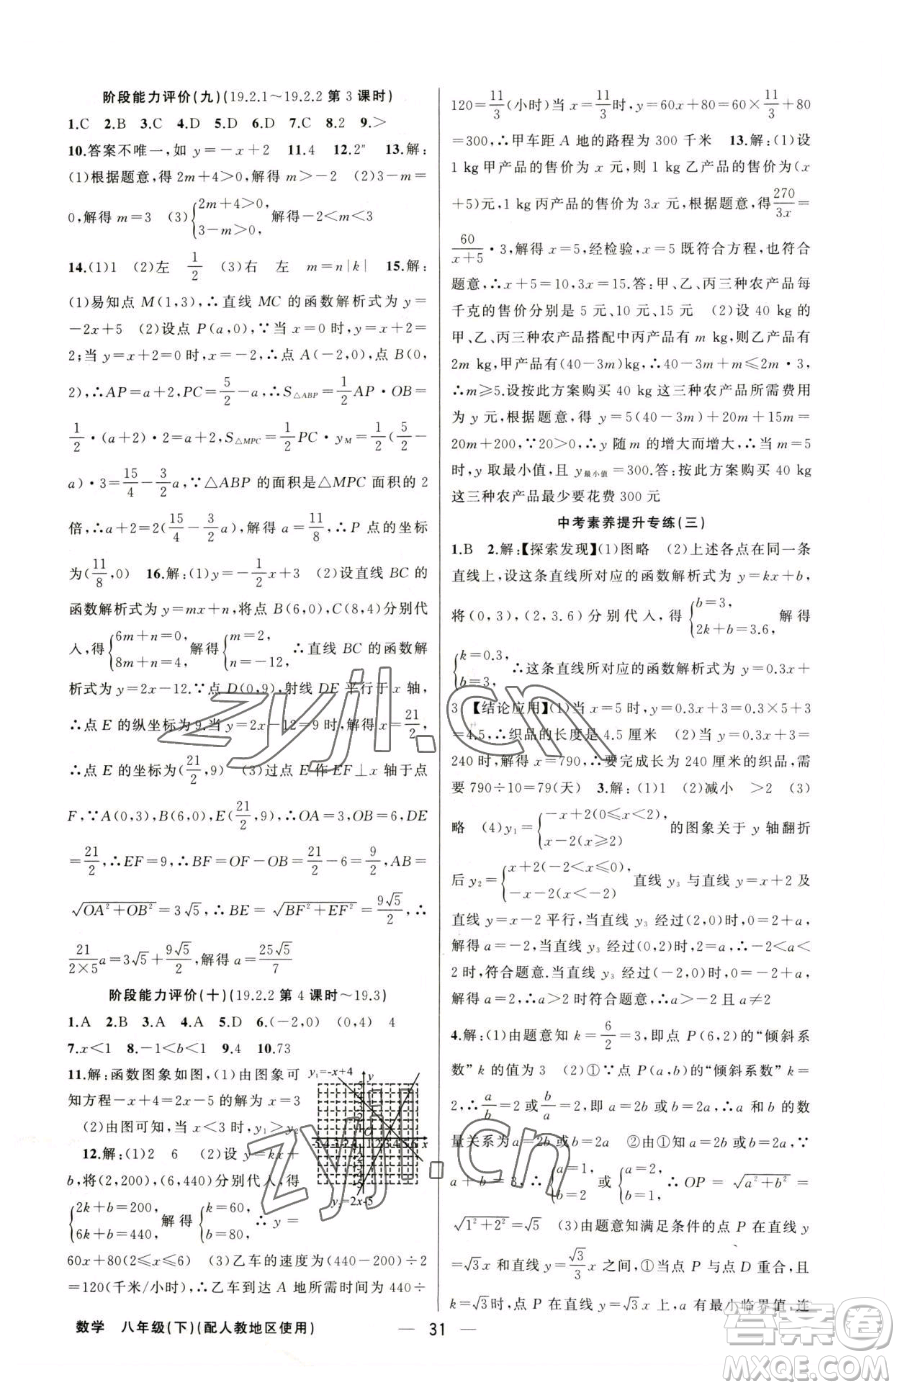 阶段能力评价(九)(19.2.1～19.2.2 第 3 课时)
1.C 2.B 3.C 4.D 5.D 6.D 7.C 8.2 9.>
10.答案不唯一,如 y=-x+2 11.4 12.2ⁿ 13.解:
(1)根据题意,得 2m+4>0,解得 m>-2 (2)3-m=
0,解得 m=3 (3){2m+4>0, 3-m>0, 解得-2<m<3
14.(1)1 (2)左 1/2 (3)右 左 m=n|k| 15.解:
(1)易知点 M(1,3),∴直线 MC 的函数解析式为 y=
-2x+5 (2)设点 P(a,0),∵当 x=0 时,y=x+2=
2;当 y=x+2=0 时,x=-2,∴点 A(-2,0),点 B(0,
2),∴AP=a+2,PC=5/2-a,∴S△ABP=1/2AP·OB=
1/2·(a+2)·2=a+2,S△MPC=1/2PC·yM=1/2(5/2-
a)·3=15/4-3/2a,∵△ABP 的面积是△MPC 面积的 2
倍,∴a+2=2(15/4-3/2a),解得 a=11/8,∴P 点的坐标为
(11/8,0) 16.解:(1)y=-1/2x+3 (2)设直线 BC 的
函数解析式为 y=mx+n,将点 B(6,0),C(8,4)分别代
入,得{6m+n=0, 8m+n=4, 解得{m=2, n=-12, ∴直线 BC 的函数
解析式为 y=2x-12.∵点 D(0,9),射线 DE 平行于 x 轴,
∴点 E 的纵坐标为 9,当 y=2x-12=9 时,解得 x=21/2,
∴点 E 的坐标为(21/2,9) (3)过点 E 作 EF⊥x 轴于点
F,∵A(0,3),B(6,0),E(21/2,9),∴OA=3,OB=6,DE
=21/2,∴EF=9,∴BF=OF-OB=21/2-6=9/2,AB=
√OA²+OB²=3√5,∴BE=√BF²+EF²=9√5/2,∴
21/2×5a=3√5+9√5/2,∴a=25√5/7
阶段能力评价(十)(19.2.2 第 4 课时～19.3)
1.A 2.B 3.A 4.A 5.D 6.(-2,0) (0,4) 4
7.x<1 8.-1<b<1 9.4 10.73
11.解:函数图象如图,(1)由图象可
知方程-x+4=2x-5 的解为 x=3
(2)由图可知,当 x<3 时,y₁>y₂
y₁=-x+4
y₂=2x-5
12.解:(1)2 6 (2)设 y=kx+
b,将(2,200),(6,440)分别代入,得
{2k+b=200, 6k+b=440, 解得{k=60, b=80, ∴y=
60x+80(2≤x≤6) (3)乙车的速度为(440-200)÷2
=120(千米/小时),∴乙车到达 A 地所需时间为 440÷
120=11/3(小时)当 x=11/3时,y=60x+80=60×11/3+80
=300,∴甲车距 A 地的路程为 300 千米 13.解:(1)设
1 kg 甲产品的售价为 x 元,则 1 kg 乙产品的售价为(x
+5)元,1 kg 丙产品的售价为 3x 元,根据题意,得270/3x=
60/x+5·3,解得 x=5,经检验,x=5 既符合方程,也符合
题意,∴x+5=10,3x=15.答:甲、乙、丙三种农产品每
千克的售价分别是 5 元、10 元、15 元 (2)设 40 kg 的
甲、乙、丙三种农产品搭配中丙产品有 m kg,则乙产品有
2m kg,甲产品有(40-3m)kg,∴40-3m≤2m·3,
∴m≥5.设按此方案购买 40 kg 这三种农产品所需费用
为 y 元,根据题意,得 y=5(40-3m)+20m+15m=
20m+200,∵20>0,∴y 随 m 的增大而增大,∴当 m=5
时,y 取最小值,且 y最小值=300.答:按此方案购买 40 kg
这三种农产品最少要花费 300 元
中考素养提升专练(三)
1.B 2.解:【探索发现】(1)图略 (2)上述各点在同一条
直线上,设这条直线所对应的函数解析式为 y=kx+b,
将(0,3),(2,3.6)分别代入,得{b=3, 2k+b=3.6, 解得
{k=0.3, b=3, ∴这条直线所对应的函数解析式为 y=0.3x+
3 【结论应用】(1)当 x=5 时,y=0.3x+3=0.3×5+3
=4.5,∴织品的长度是 4.5 厘米 (2)当 y=0.3x+3=
240 时,解得 x=790,∴要完成长为 240 厘米的织品,
需要 790÷10=79(天) 3.解:(1)2 (2)减小 >2 (3)
略 (4)y₁={-x+2(0≤x<2), x-2(x≥2) 的图象关于 y 轴翻折
后 y₂={x+2(-2<x≤0), -x-2(x≤-2), 直线 y₃ 与直线 y=x+2 和
直线 y=x-2 平行,当直线 y₃ 经过(-2,0)时,0=2+a,
解得 a=-2;当直线 y₃ 经过(2,0)时,a=2,∴-2<a<
2.∵当 a=-2 时符合题意,当直线 y₃ 经过(-2,0)时,解
得 a=2,∵当 a=2 时符合题意,∴-2≤a≤2
4.解:(1)由题意知 k=6/2=3,即点 P(6,2)的“倾斜系
数”k 的值为 3 (2)①∵点 P(a,b)的“倾斜系数”k=2,
∴a/b=2 或 b/a=2,即 a=2b 或 b=2a,∴a 和 b 的数
量关系为 a=2b 或 b=2a ②由①知,a=2b 或 b=2a,∵
a+b=3,∴{a=2, b=1 或{a=1, b=2, ∴OP=√a²+b²=
√1²+2²=√5 (3)由题意知满足条件的点 P 在直线 y
=√3x 和直线 y=√3/3x 之间,∴当点 P 与点 D 重合,且
k=√3 时,P 点与 D 点坐标之和 a 有最小临界值,连
数学 八年级(下)(配人教地区使用)
— 31 —
zyjl.cn
zyjl.cn
答案圈
MXQE.COM